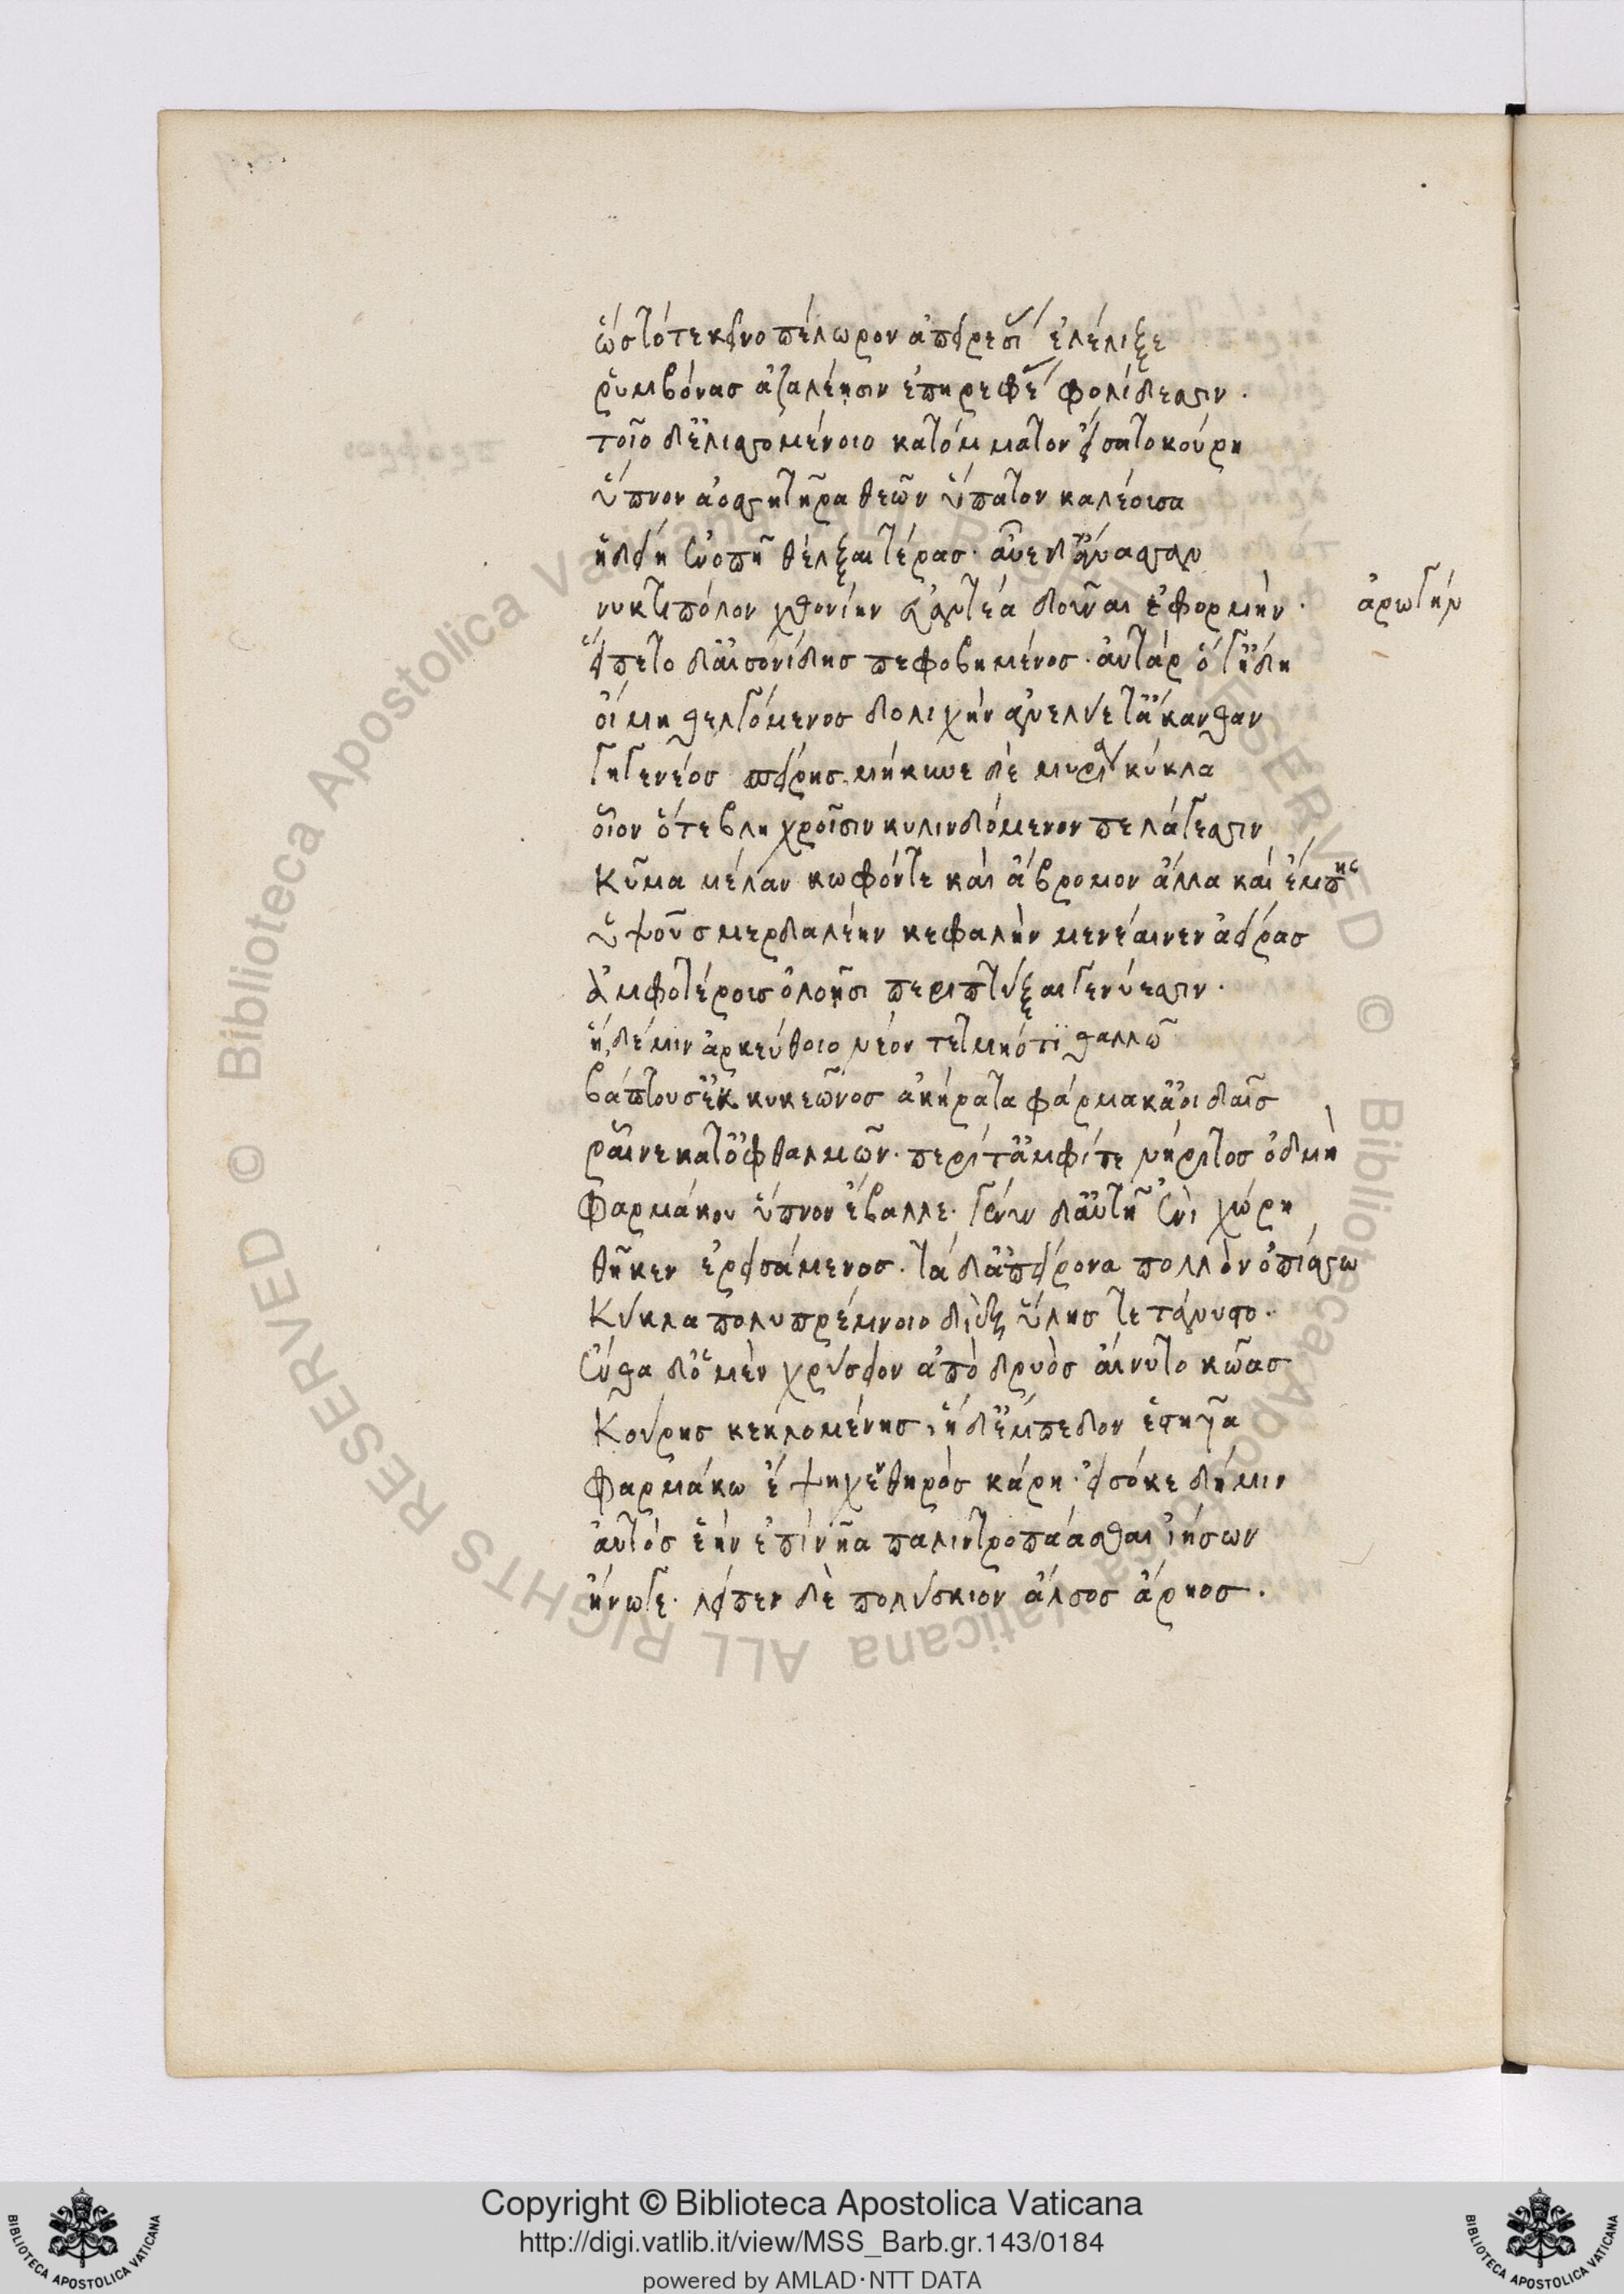 ὡς τότε κεῖνο πέλωρον ἀπειρεσί ἐλέλιξε
ῥυμβόνας ἀζαλέησιν ἐπηρεφέ φολίδεσσιν.
τοῖο δ' ἑλισσομένοιο κατόμματον εἴσατο κούρη
ὕπνον ἀοσσητῆρα θεῶν ὕπατον καλέουσα
ἡδείη ἐνοπῆ θέλξαι τέρας. αὖε δ' ἄνασσαν
νυκτιπόλον χθονίην εὐαντέα δοῦναι ἐφορμήν. ἀρωγήν
εἵπετο δ' αἰσονίδης πεφοβημένος. αὐτὰρ ὅγ' ἤδη
οἴμη θελγόμενος δολιχὴν ἀνελύετ' ἄκανθαν
γηγενέος σπείρης. μήκυνε δὲ μυρία κύκλα
οἷον ὅτε βληχροῖσιν κυλινδόμενον πελάγεσσιν
κῦμα μέλαν κωφόν τε καὶ ἄβρομον ἀλλὰ καὶ ἔμπης
ὑψοῦ σμερδαλέην κεφαλὴν μενέαινεν ἀείρας
ἀμφοτέρους ὀλοῇσι περιπτύξαι γενύεσσιν.
ἡ δέ μιν ἀρκεύθοιο νέον τετμηότι θαλλῶ
βάπτουσ' ἐκ κυκεῶνος ἀκήρατα φάρμακ' ἀοιδαῖς
ῥαῖνε κατ' ὀφθαλμῶν. περί τ' ἀμφί τε νήριτος ὀδμὴ
φαρμάκου ὕπνον ἔβαλλε. γένυν δ' αὐτῆ ἐνὶ χώρη
θῆκεν ἐρεισάμενος. τὰ δ' ἀπείρονα πολλὸν ὀπίσσω
κύκλα πολυπρέμνοιο διὲξ ὕλης τετάνυστο.
ἔνθα δ' ὁ μὲν χρύσειον ἀπὸ δρυὸς αἴνυτο κῶας
κούρης κεκλομένης, ἡ δ' ἔμπεδον ἑστηῦα
φαρμάκω ἔψηχε θηρὸς κάρη. εἰσόκε δή μιν
αὐτὸς ἑὴν ἐπὶ νῆα παλιντροπάασθαι ἰήσων
ἤνωγε. λεῖπεν δὲ πολύσκιον ἄλσος ἄρηος.
Copyright © Biblioteca Apostolica Vaticana
http://digi.vatlib.it/view/MSS_Barb.gr.143/0184
powered by AMLAD·NTT DATA